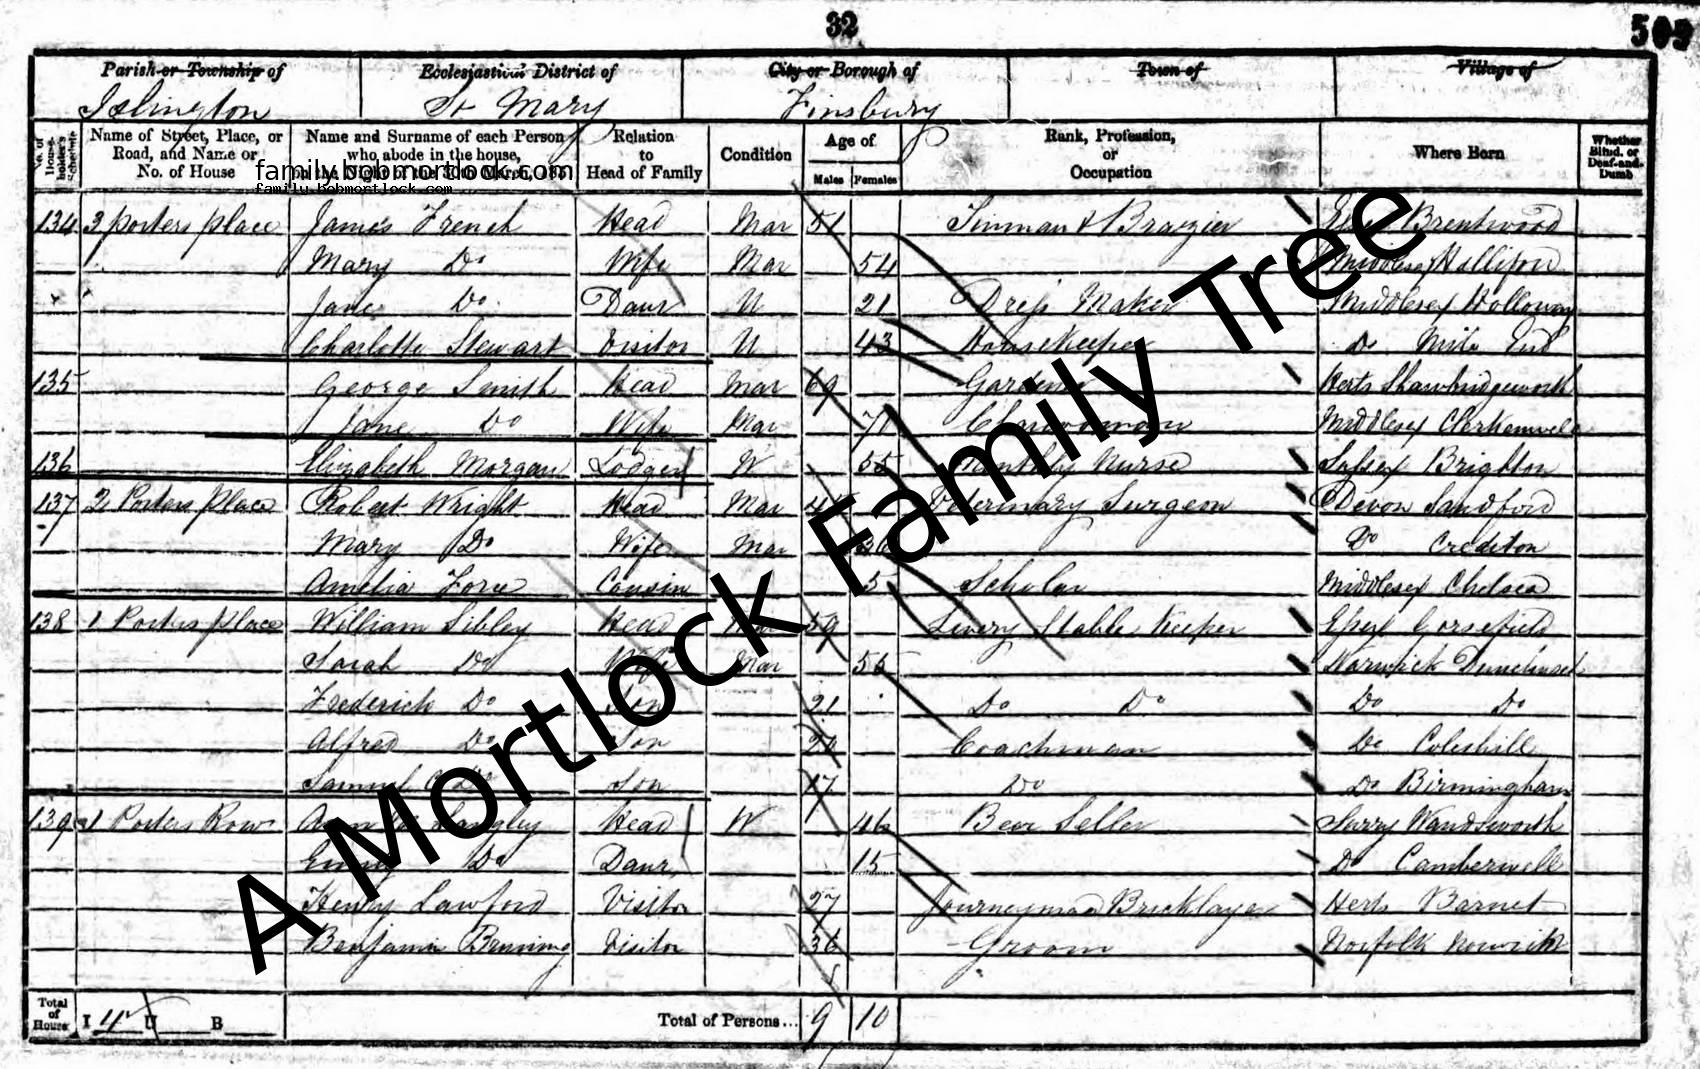 32
Parish or Township of Ecclesiastical District of City or Borough of Town of Village of
Islington St Mary Finsbury
No. of House-holder's Schedule Name of Street, Place, or Road, and Name or No. of House Name and Surname of each Person who abode in the house, on the Night of the 30th March, Relation to Head of Family Condition Age of Males Females Rank, Profession, or Occupation Where Born Whether Blind, or Deaf-and-Dumb
family.bobmortlock.com
family.bobmortlock.com
134 3 porters place James French Head Mar 51 Tinman & Brazier Brentwood
Mary Do Wife Mar 54 Middlesex
Jane Do Daur U 21 Dress Maker Middlesex Holloway
Charlotte Stewart Visitor U 43 HouseKeeper Do Mile End
135 George Smith Head Mar 69 Gardener Herts
Jane Do Wife Mar 71 Middlesex Clerkenwell
136 Elizabeth Morgan Lodger W 55 Monthly Nurse Sussex Brighton
137 2 Porters place Robert Wright Head Mar Veterinary Surgeon Devon Sandford
Mary Do Wife Mar 36 Do Crediton
Amelia Cousin 5 Scholar Middlesex Chelsea
138 1 Porters place William Sibley Head Mar 59 Livery Stable Keeper Essex
Sarah Do Wife Mar Warwick
Frederick Do Son 21 Do Do Do Do
Alfred Do Son Coachman Do Coleshill
Samuel Do Son 17 Do Do Birmingham
139 1 Porters Row Langley Head W 46 Beer Seller Surry Wandsworth
Do Daur 15 Do Camberwell
Henry Lawford Visitor 27 Journeyman Bricklayer Herts Barnet
Benjamin Visitor 36 Groom Norfolk Norwich
Total of Houses I 4 U B Total of Persons... 9 10
A Mortlock Family Tree